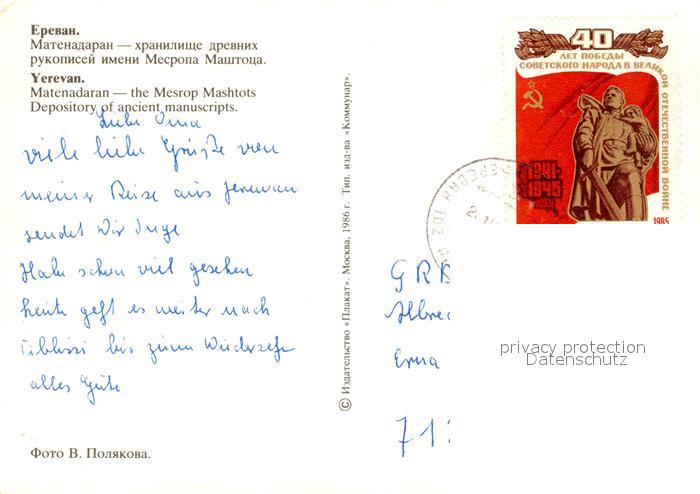 Ереван.
Матенадаран — хранилище древних
рукописей имени Месропа Маштоца.
Yerevan.
Matenadaran — the Mesrop Mashtots
Depository of ancient manuscripts.
Liebe Oma
viele liebe Grüße von
meiner Reise aus Jerewan
sendet Dir Inge
Habe schon viel gesehen
heute geht es weiter nach
Tiblissi bis zum Wiedersehn
alles Gute
Фото В. Полякова.
© Издательство «Плакат». Москва, 1986 г. Тип. изд-ва «Коммунар».
40
ЛЕТ ПОБЕДЫ
СОВЕТСКОГО НАРОДА В ВЕЛИКОЙ ОТЕЧЕСТВЕННОЙ ВОЙНЕ
1941
1945
1985
ЕРЕВАН 102
GRB
Albrec
Erna
71
privacy protection
Datenschutz